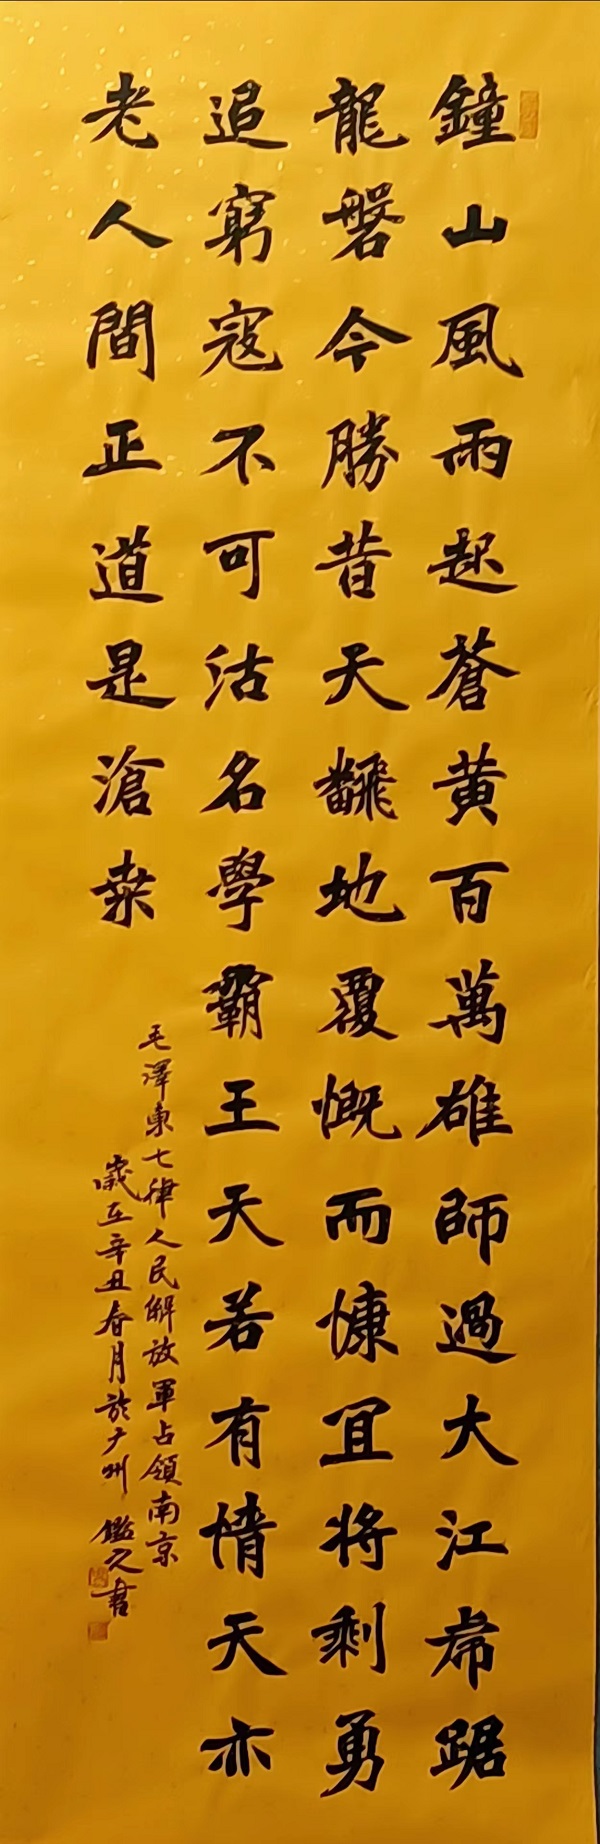 鐘山風雨起蒼黃百萬雄師過大江虎踞
龍磐今勝昔天翻地覆慨而慷宜將剩勇
追窮寇不可沽名學霸王天若有情天亦
老人間正道是滄桑
毛澤東七律人民解放軍占領南京
歲在辛丑春月於广州 鑑之書